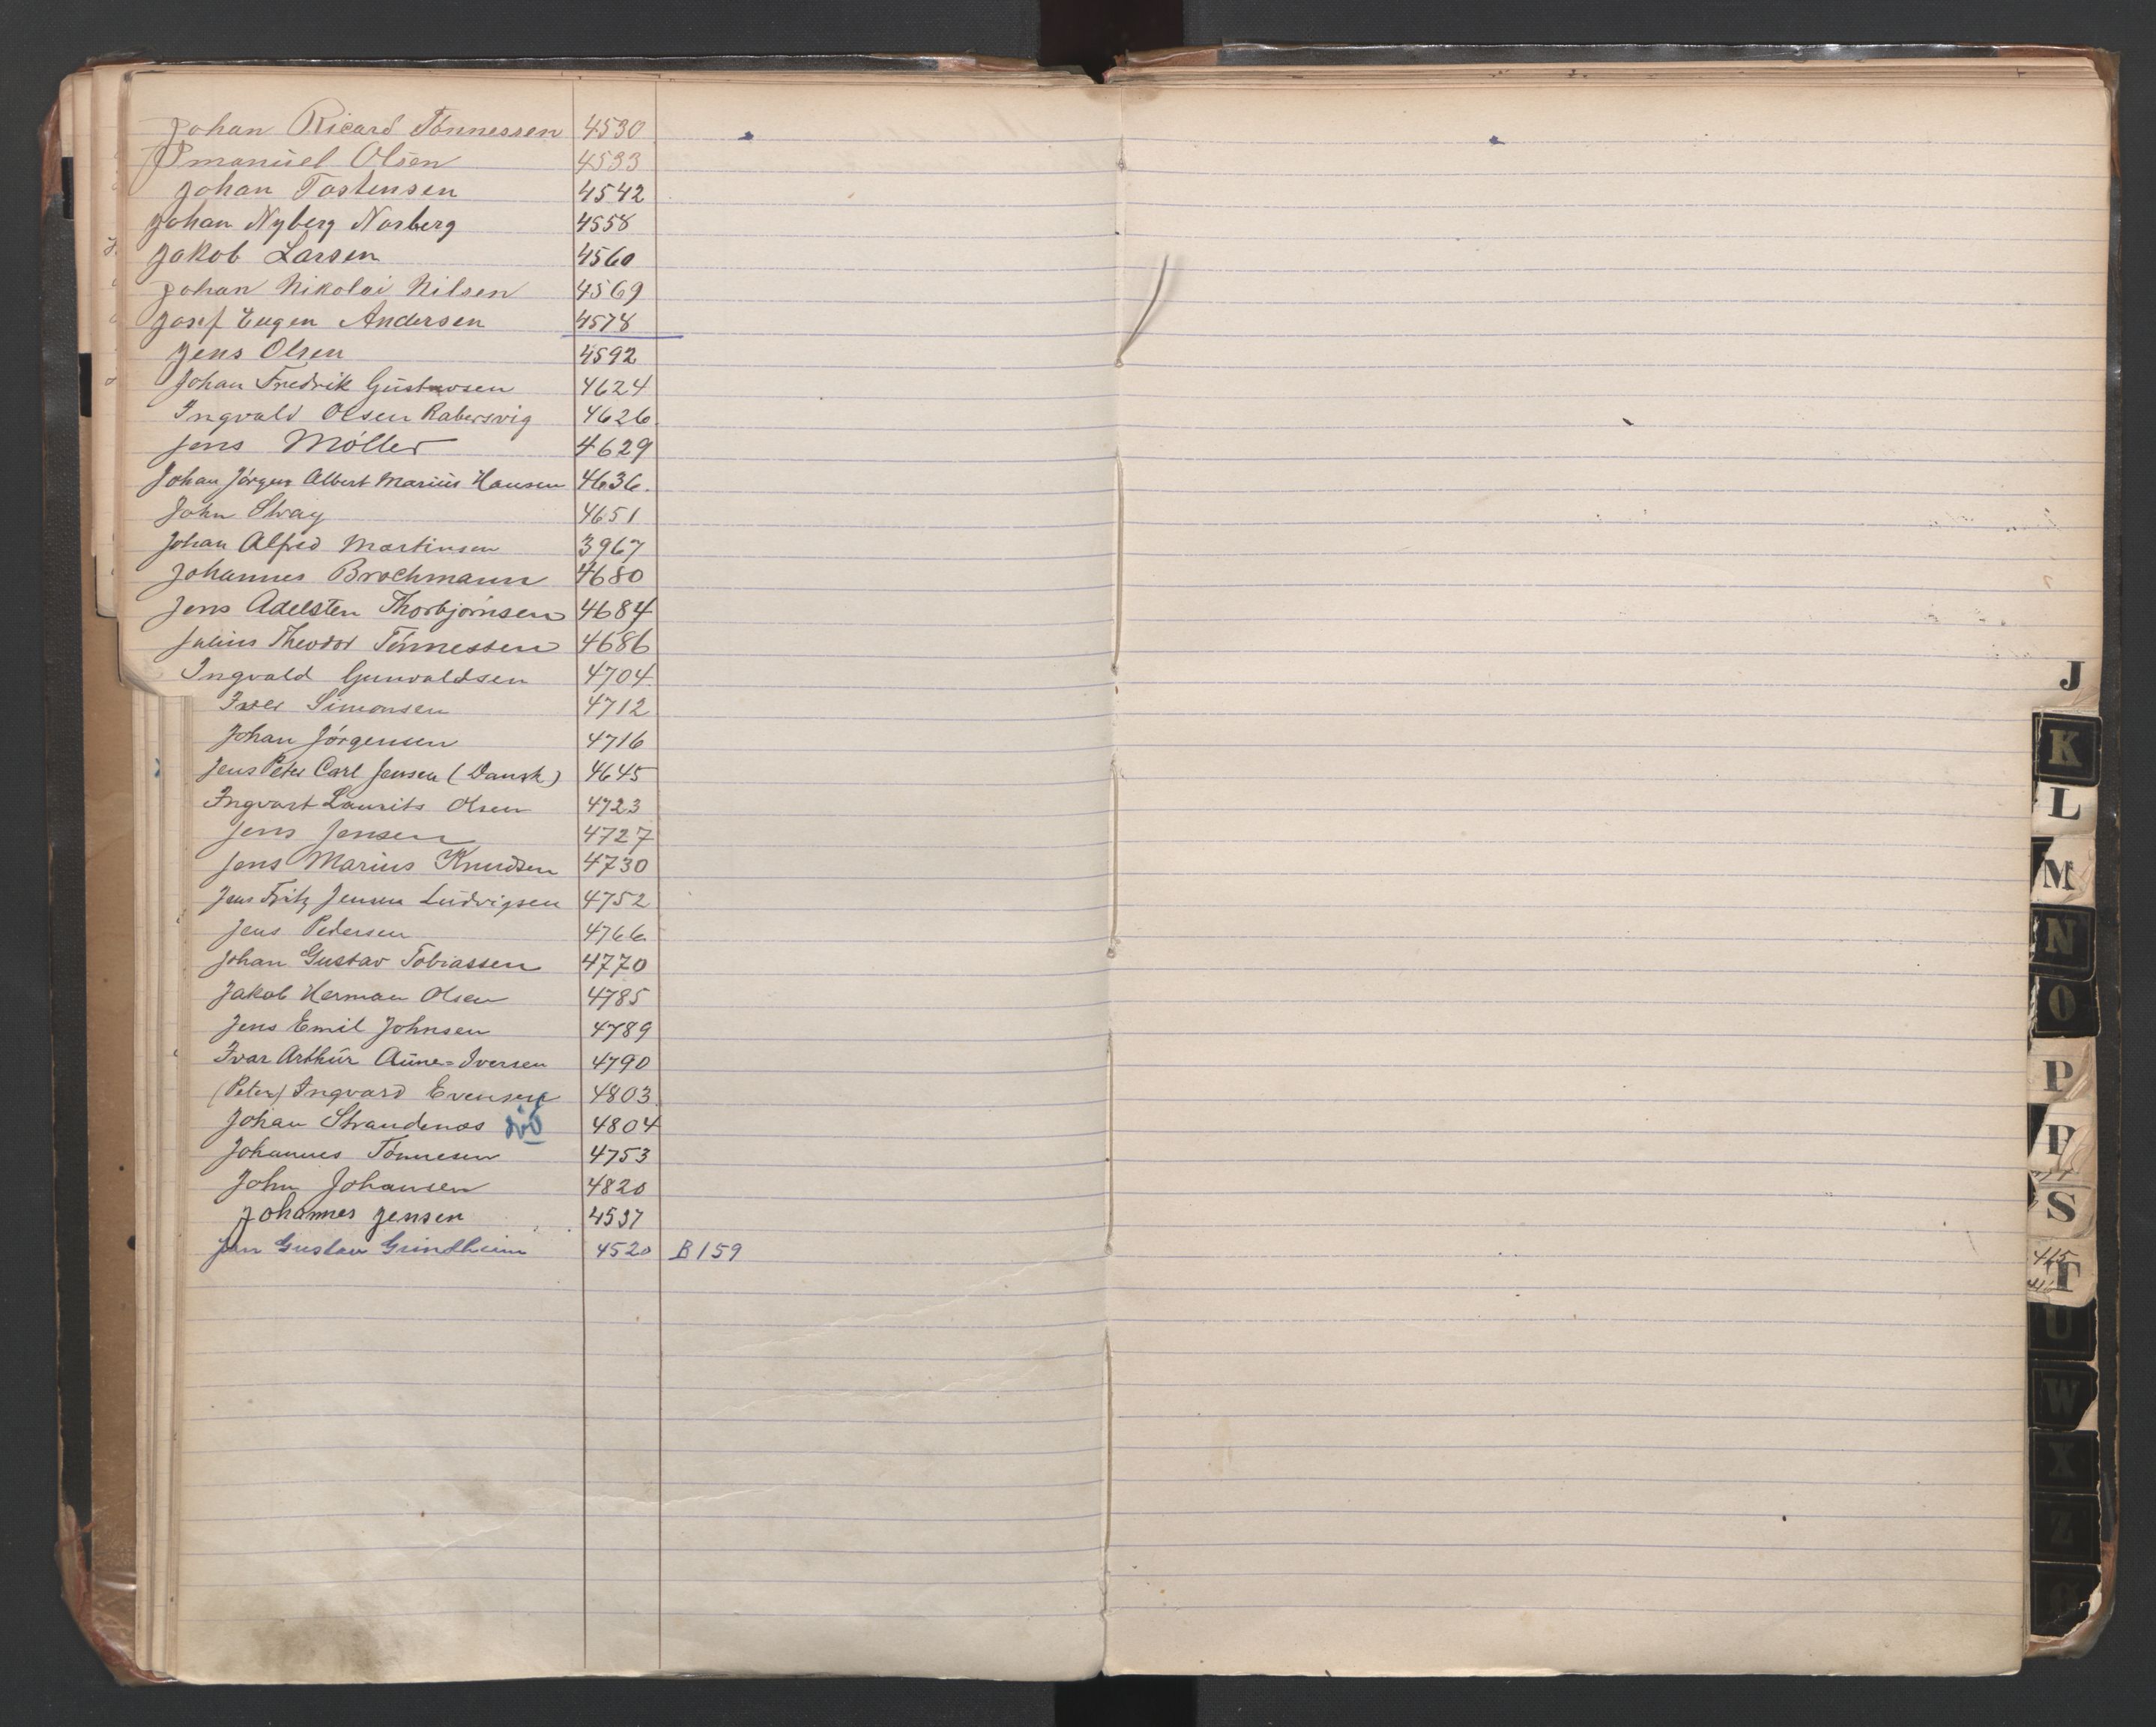 Johan Ricard Tönnessen 4530
Imanuel Olsen 4533
Johan Tostensen 4542
Johan Nyberg Norberg 4558
Jakob Larsen 4560
Johan Nikolai Nilsen 4569
Josef Eugen Andersen 4578
Jens Olsen 4592
Johan Fredrik Gustavsen 4624
Ingvald Olsen Rabersvig 4626
Jens Möller 4629
Johan Jörgen Albert Marius Hansen 4636.
John Stray 4651
Johan Alfred Martinsen 3967
Johannes Brochmann 4680
Jens Adelsten Thorbjörnsen 4684
Julius Theodor Tönnessen 4686
Ingvald Gunvaldsen 4704
Iver Simonsen 4712
Johan Jörgensen 4716
Jens Peter Carl Jensen (Dansk) 4645
Ingvart Laurits Olsen 4723
Jens Jensen 4727
Jens Marius Knudsen 4730
Jens Fritz Jensen Ludvigsen 4752
Jens Pedersen 4766
Johan Gustav Tobiassen 4770
Jakob Herman Olsen 4785
Jens Emil Johnsen 4789
Ivar Arthur Aune=Iversen 4790
(Peter) Ingvard Evensen 4803
Johan Strandenæs 4804
Johannes Tönnesen 4753
John Johansen 4820
Johannes Jensen 4537
Jan Gustav Grindheim 4520 B159
J
K
L
M
N
O
P
S
T
U
W
X
Z